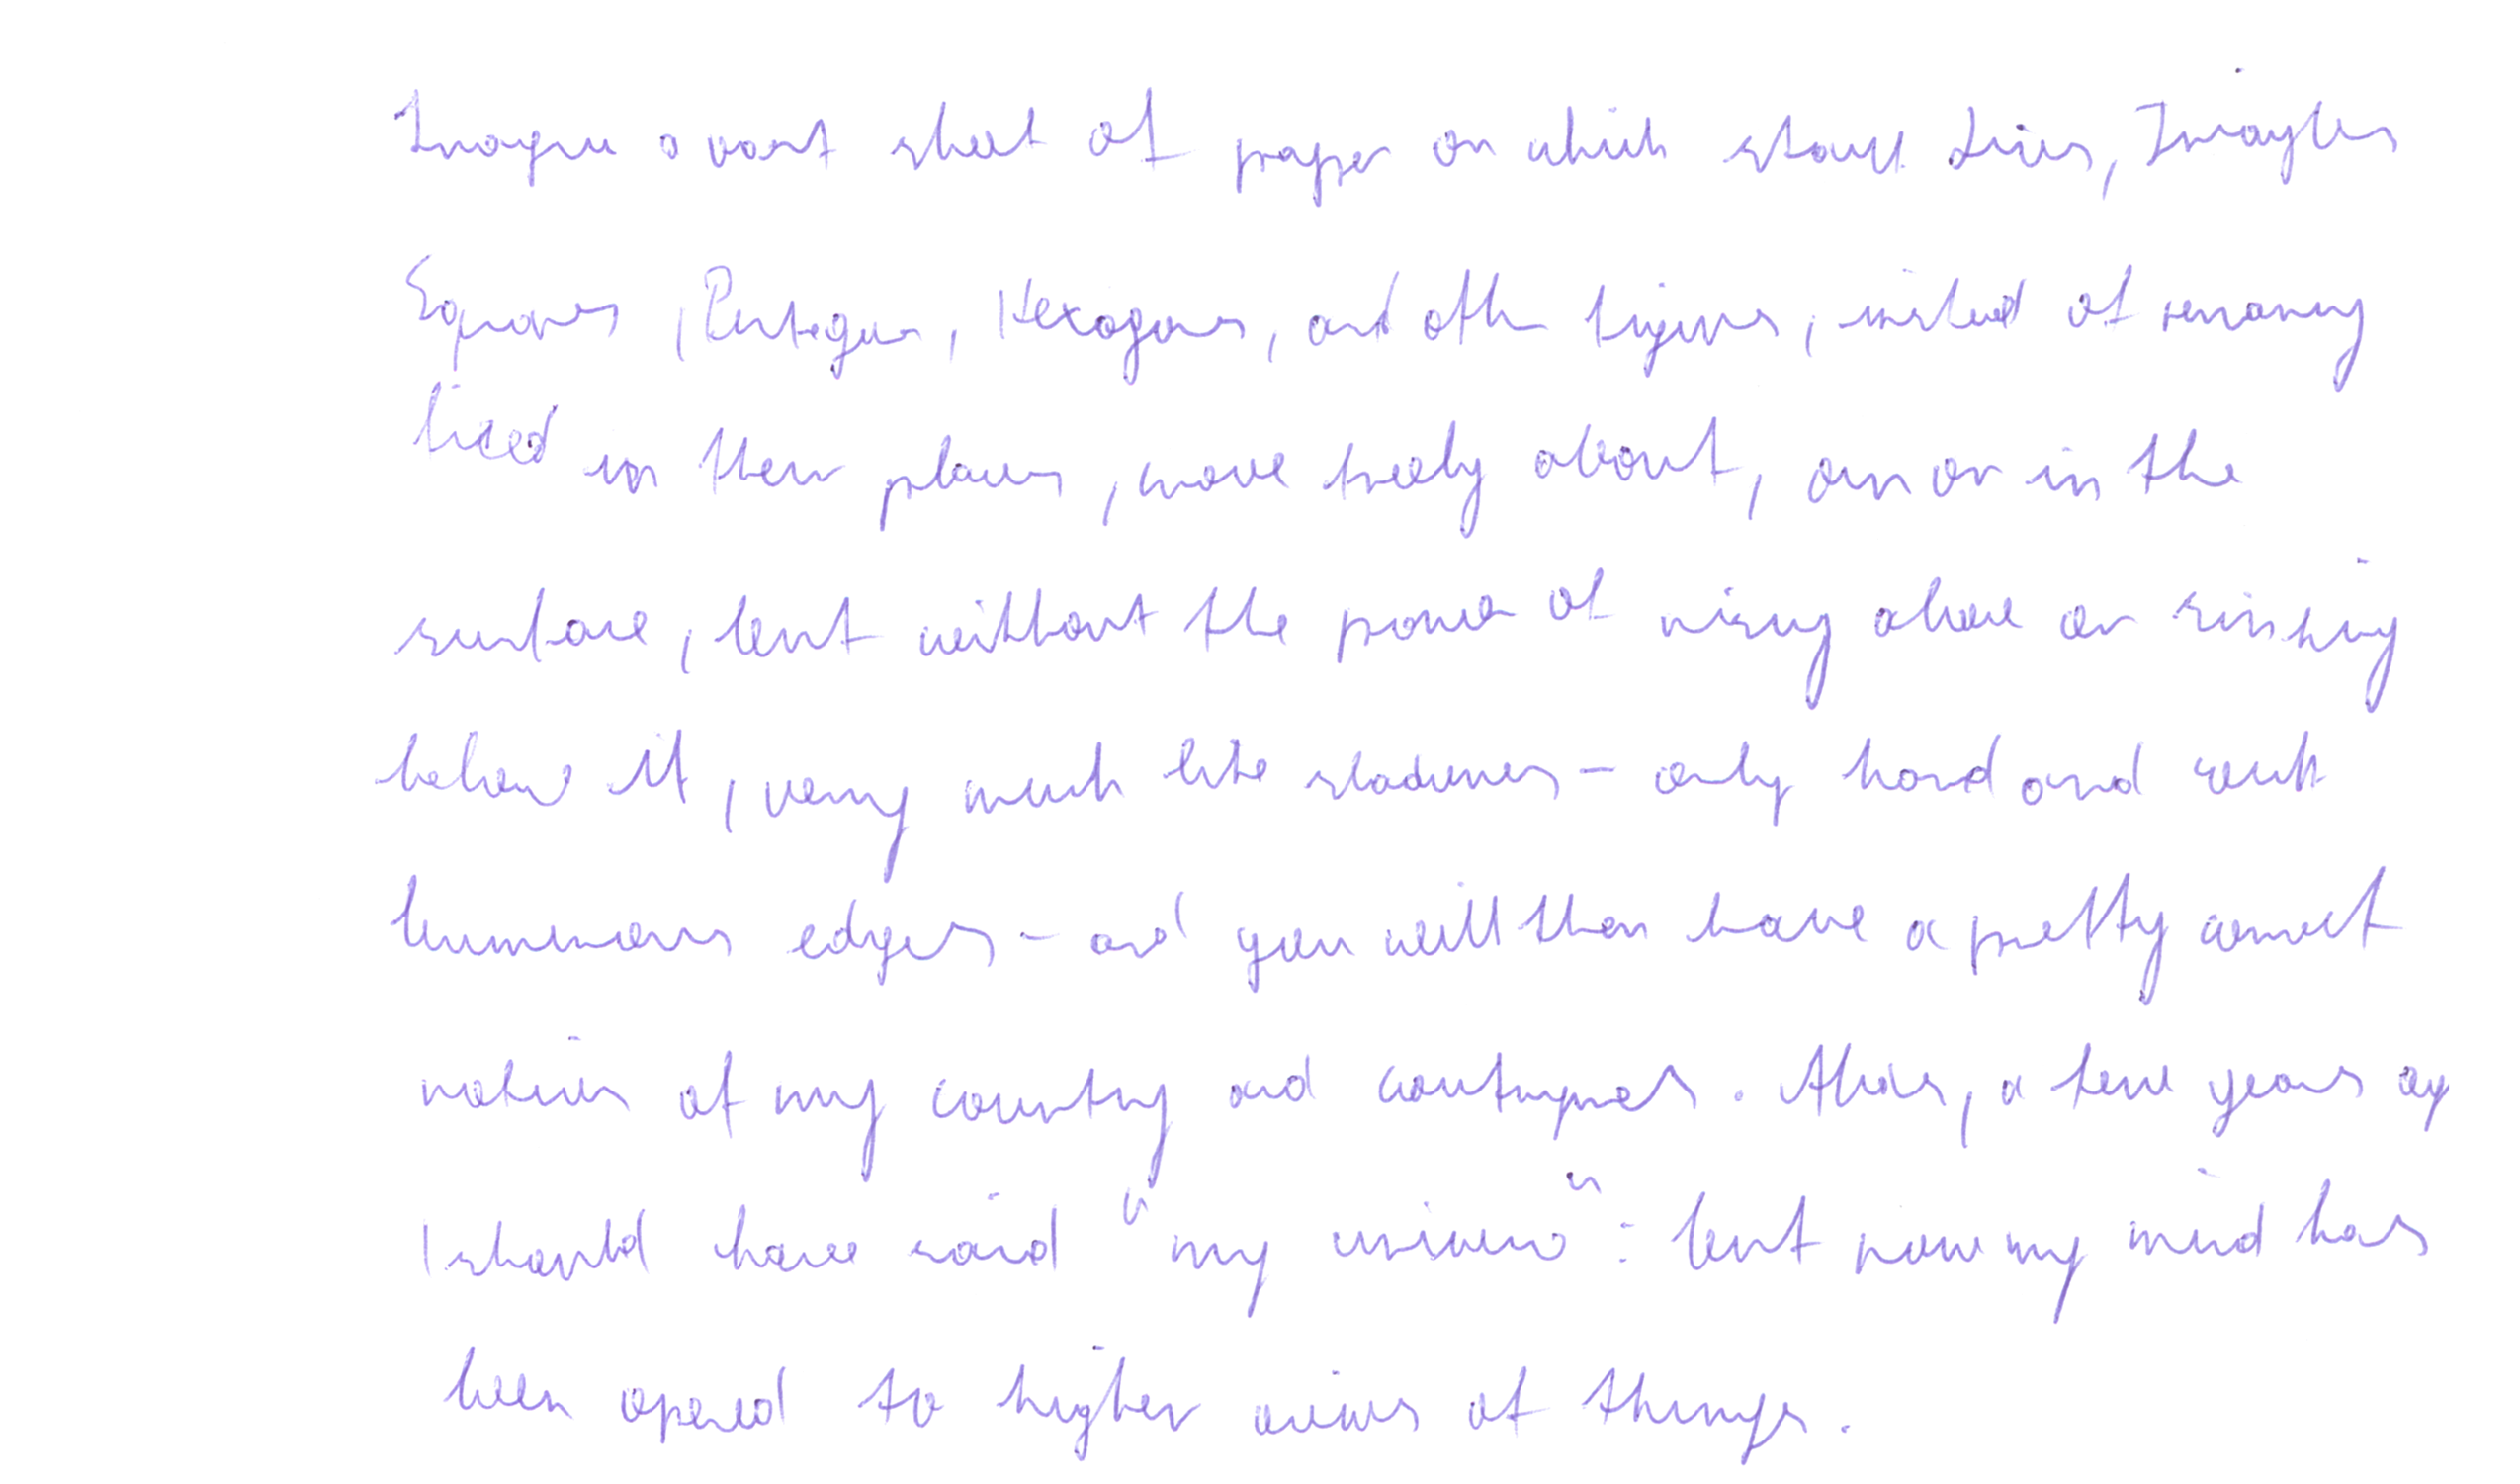 Imagine a vast sheet of paper on which straight Lines, Triangles
Squares, Pentagons, Hexagons, and other figures, instead of remaining
fixed in their places, move freely about, on or in the
surface, but without the power of rising above or sinking
below it, very much like shadows - only hard and with
luminous edges - and you will then have a pretty correct
notion of my country and countrymen. Alas, a few years ago
I should have said "my universe": but now my mind has
been opened to higher views of things.